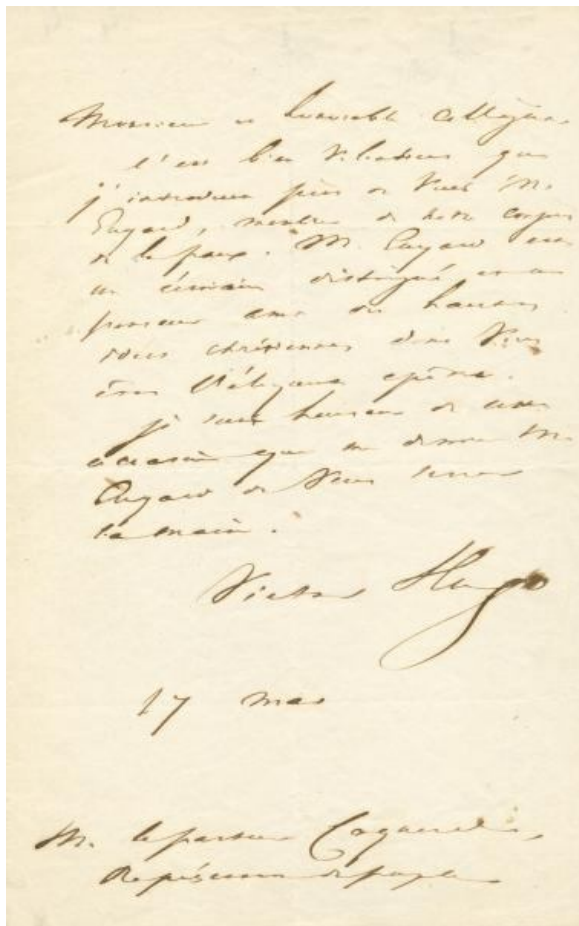 Monsieur et honorable collègue
c'est bien volontiers que
j'introduis près de vous M.
membre de notre congrès
de la paix. M. est
un écrivain distingué et un
penseur ami des hautes
idées chrétiennes dont vous
êtes l'éloquent apôtre.
Je suis heureux de cette
occasion que me donne M.
de vous serrer
la main.
Victor Hugo
17 mai
M. le pasteur Coquerel,
Représentant du peuple